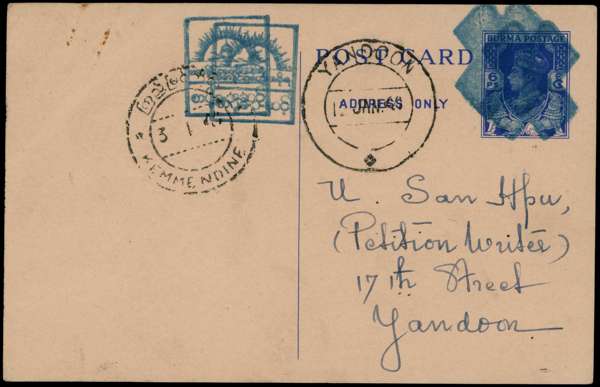 POST CARD
ADDRESS ONLY
BURMA POSTAGE
6 Ps
YANDOON
12 JAN.
KEMMENDINE
3 1
U. San Hpu,
(Petition Writer)
17 th Street
Yandoon